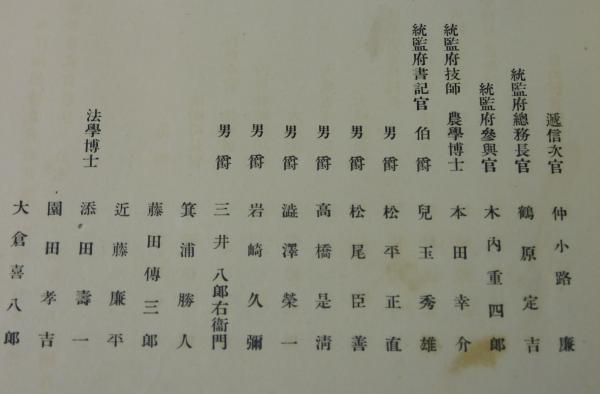 遞信次官 仲小路廉
統監府總務長官 鶴原定吉
統監府參與官 木内重四郎
統監府技師 農學博士 本田幸介
統監府書記官 伯爵 兒玉秀雄
男爵 松平正直
男爵 松尾臣善
男爵 高橋是清
男爵 澁澤榮一
男爵 岩崎久彌
男爵 三井八郎右衞門
箕浦勝人
藤田傳三郎
近藤廉平
法學博士 添田壽一
園田孝吉
大倉喜八郎